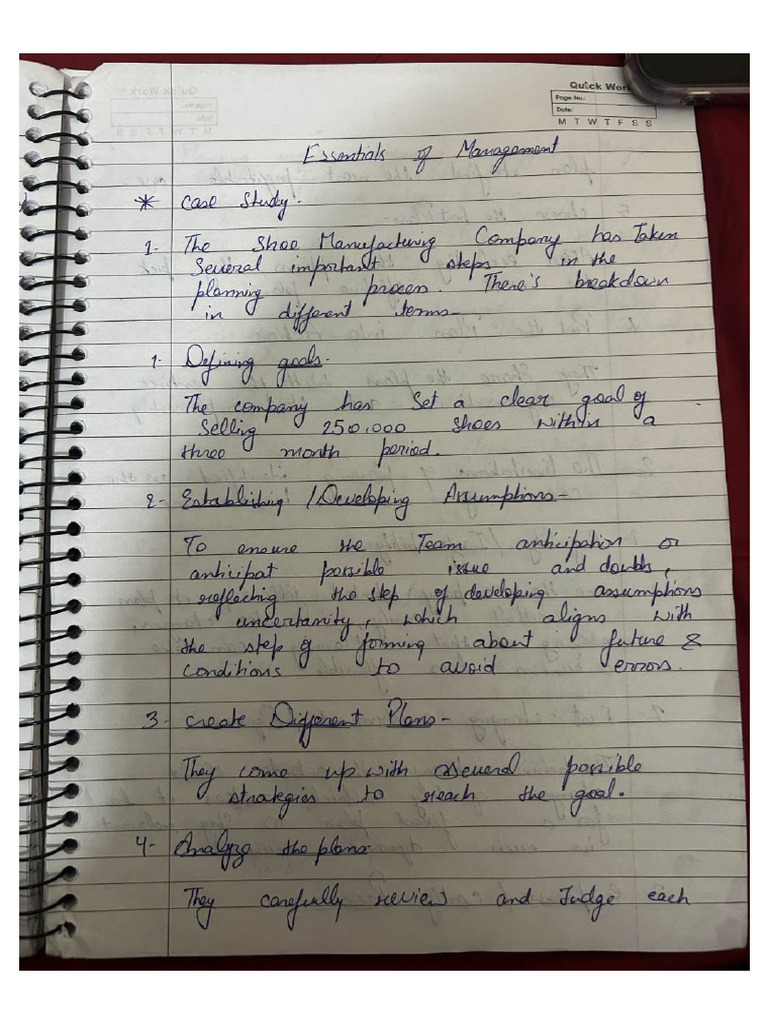 Quick Work
Page No.:
Date:
M T W T F S S
Essentials of Management
* Case Study.
1. The Shoe Manufacturing Company has Taken
Several important steps in the
planning process. There's breakdown
in different terms-
1- Defining goals.
The company has Set a clear goal of
Selling 250,000 shoes within a
three month period.
2- Establishing / Developing Assumptions-
To ensure the Team anticipation or
anticipat possible issue and doubts,
reflecting the step of developing assumptions
uncertanity, which aligns with
the step of forming about future &
conditions to avoid errors.
3- create Different Plans-
They come up with several possible
strategies to reach the goal.
4- Analyze the plans-
They carefully review and Judge each